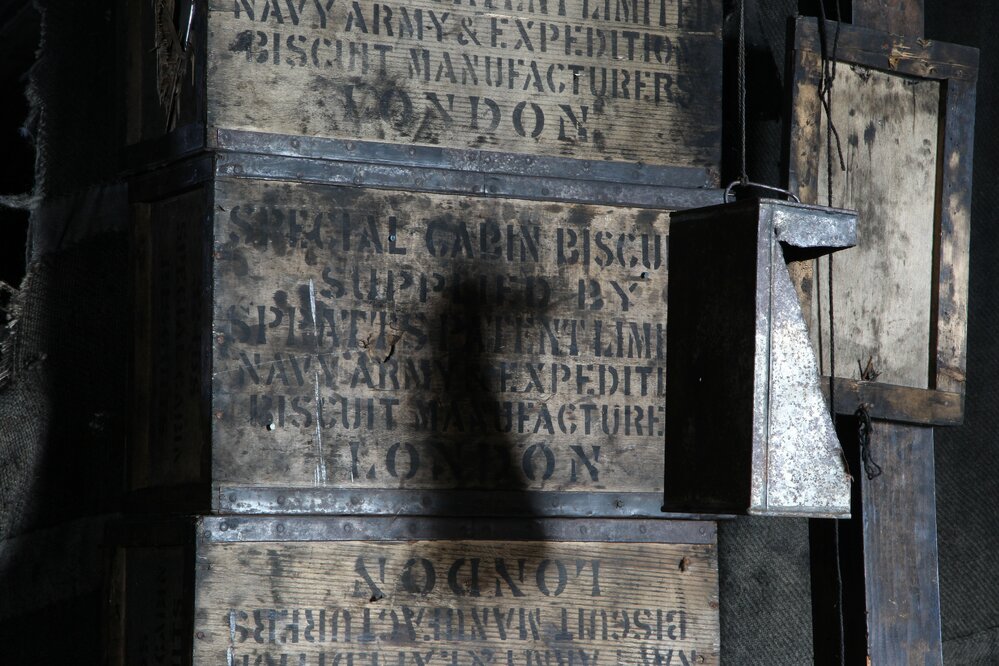 TENT LIMITE
NAVY ARMY & EXPEDITION
BISCUIT MANUFACTURERS
LONDON
SPECIAL CABIN BISCU
SUPPLIED BY
SPRATT'S PATENT LIMI
NAVY ARMY & EXPEDITI
BISCUIT MANUFACTURE
LONDON
LONDON
BISCUIT MANUFACTURERS
NAVY ARMY & EXPEDITION